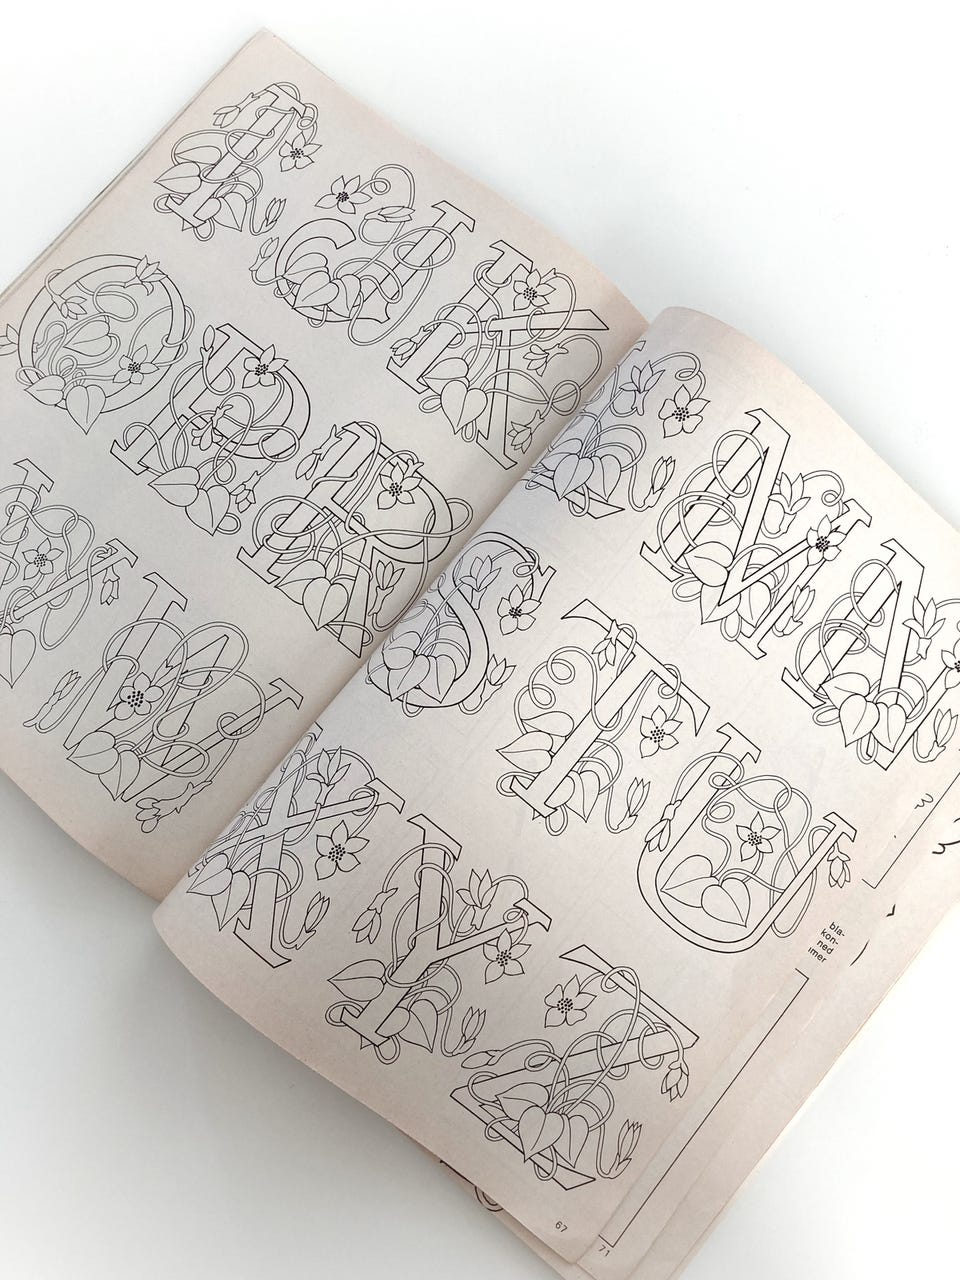 I J K L M N
O P R S T U
V W X Y Z
67
bla-
kon-
ned
71